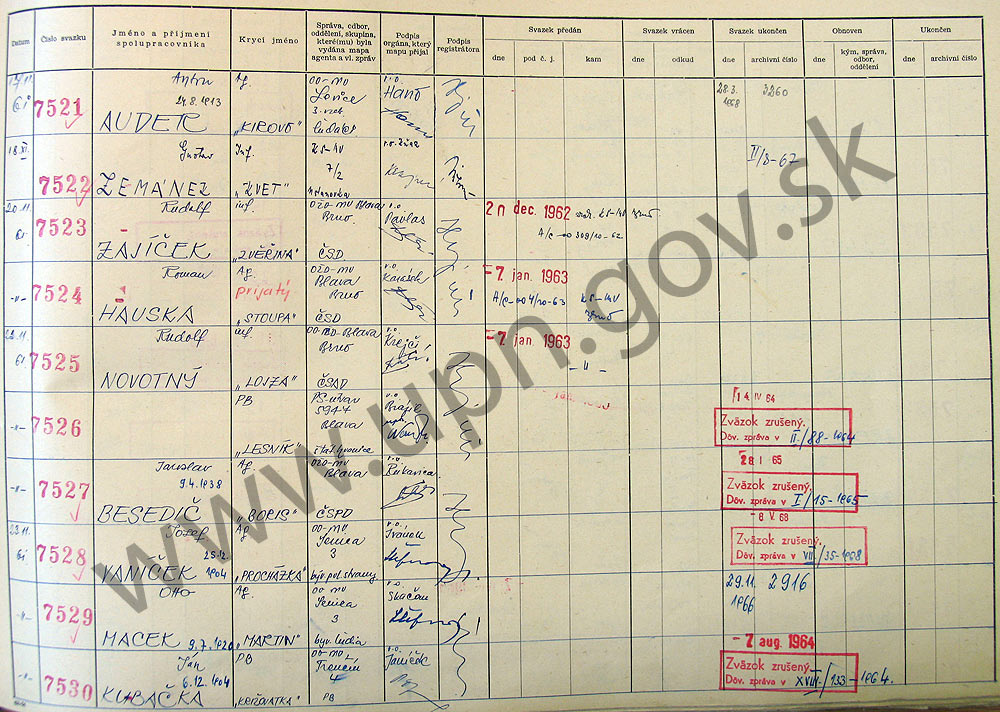 Datum
Číslo svazku
Jméno a příjmení
spolupracovníka
Krycí jméno
Správa, odbor,
oddělení, skupina,
které(mu) byla
vydána mapa
agenta a vl. zpráv
Podpis
orgána, který
mapu přijal
Podpis
registrátora
Svazek předán
dne
pod č. j.
kam
Svazek vrácen
dne
odkud
Svazek ukončen
dne
archivní číslo
Obnoven
dne
kým, správa,
odbor,
oddělení
Ukončen
dne
archivní číslo
7521
24.8.1913
AUDETR
Ag.
"KIROVO"
OO-MV
3.
r.o.
Hanó
28.3.
1968
3260
18 XI.
7522
Gustav
ZEMÁNEK
Inf.
"KVET"
KS-MV
7/2
II/8-67
20 11.
61.
7523
Rudolf
ZAJÍČEK
inf.
"ZVĚŘINA"
OŽO-MV Blava
Brno
ČSD
r.o
Pavlas
20 dec. 1962
KS-MV
A/c-00309/10-62
-"-
7524
Roman
HAUSKA
Ag.
prijatý
"STOUPA"
OŽO-MV
Blava
Brno
ČSD
r.o
-7. jan. 1963
A/c-004/10-63
KS-MV
22.11.
61.
7525
Rudolf
NOVOTNÝ
inf
"LOJZA"
OO-MV-Blava
Brno
ČSAD
r.o.
Krejčí
-7 jan. 1963
-"-
-"-
7526
PB
"LESNÍK"
PS-útvar
5944
Blava
14 IV 64
Zväzok zrušený.
Dôv. zpráva v II/88-1964
-"-
7527
Jaroslav
9.4.1938
BESEDIČ
Ag.
"BORIS"
OŽO-MV
Blava
ČSPD
r.o
28 I 65
Zväzok zrušený.
Dôv. zpráva v I/15-1965
23.11.
61
7528
Jozef
25.12.
1904
VANÍČEK
Ag
"PROCHÁZKA"
OO-MV
Senica
3
býv. pol. strany
r.o.
Ivánek
- 8 V. 68
Zväzok zrušený.
Dôv. zpráva v VII./35-1968
-"-
7529
Otto
MACEK 9.7.1920
Ag.
"MARTIN"
OO MV
Senica
3
r.o.
29.11.
1966
2916
-"-
7530
Ján
6.12.1904
KUBAČKA
PB
"KRIŽOVATKA"
OO-MV
Trenčín
4
PB
r.o.
- 7 aug. 1964
Zväzok zrušený.
Dôv. zpráva v XVIII./133-1964.
www.upn.gov.sk